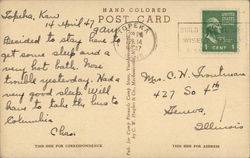 HAND COLORED
POST CARD
Topeka, Kan
14 April 47
TOPEKA
1 CENT 1
Decided to stay here to
get some sleep and a
very hot bath. More
trouble yesterday. Had a
very good sleep. Will
have to take the bus to
Columbia
Chas.
Mrs. C. H. Troutman
427 So 4th
Geneva,
Illinois
THIS SIDE FOR CORRESPONDENCE
THIS SIDE FOR ADDRESS